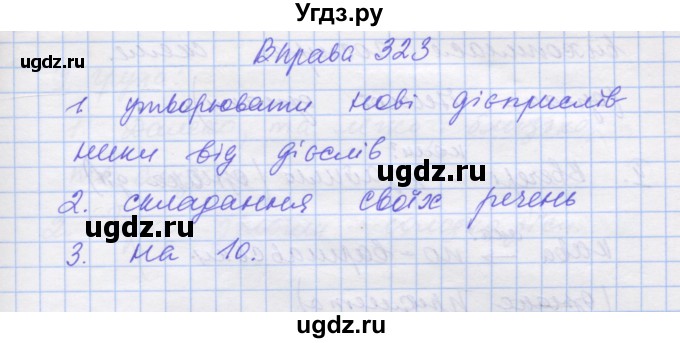 Угдз.ру
Вправа 323
ugdz.ru
ugdz.ru
1. утворювати нові дієприслів
ники від дієслів
ugdz.ru
2. складання своїх речень
ugdz.ru
3. на 10.
ugdz.ru
ugdz.ru